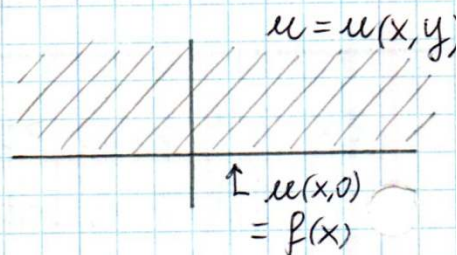 u = u(x,y)
u(x,0)
= f(x)